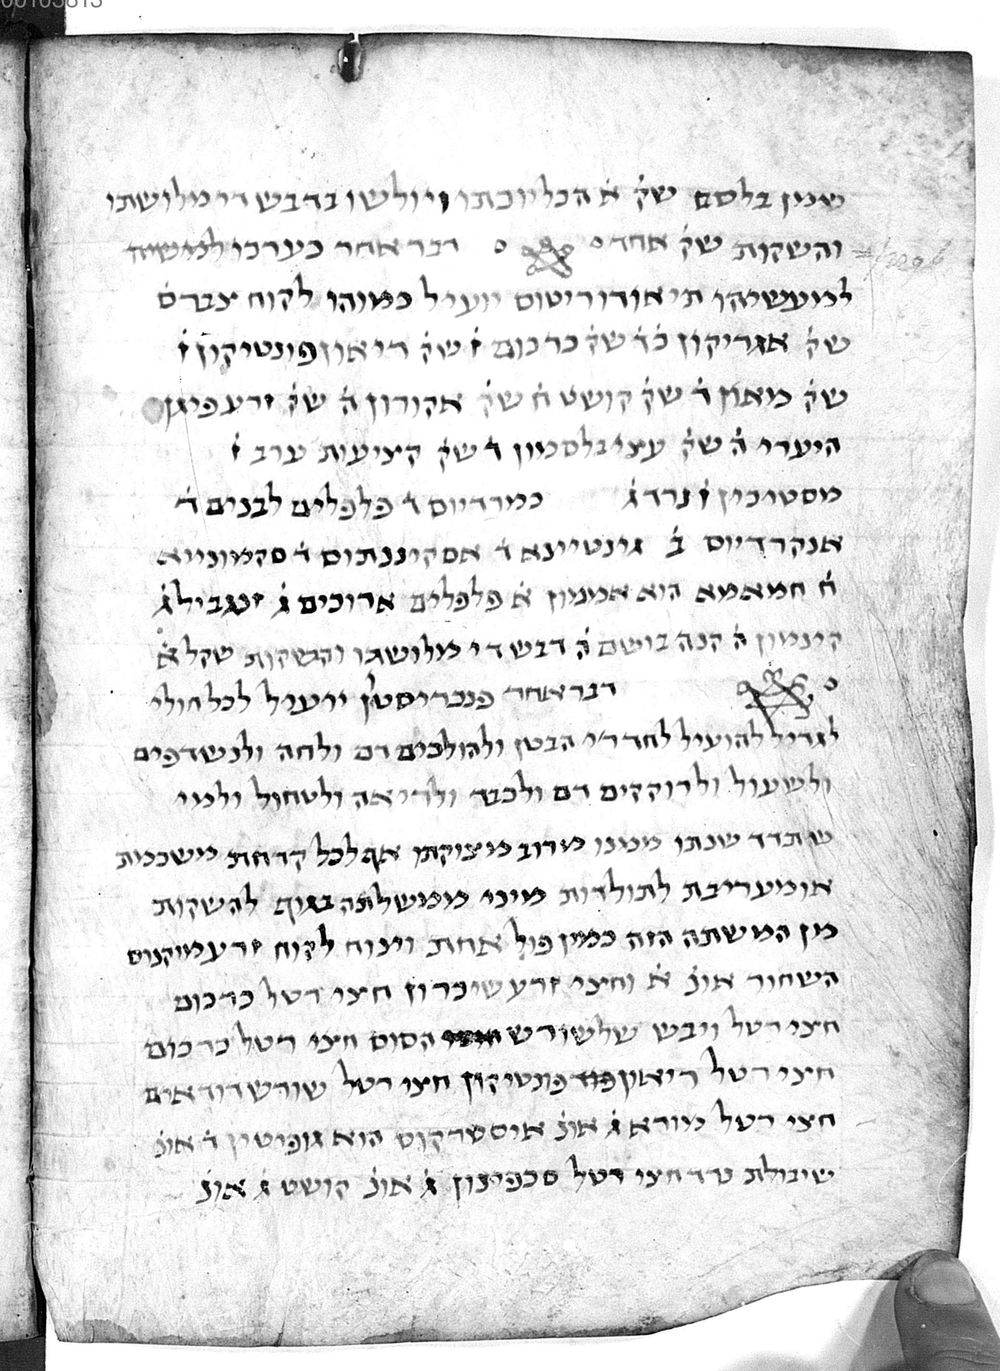 00105813
שמן בלסם שק׳ א׳ הכל יוכתו ויולשו בדבש די מלושתו
והשקות שק׳ אחד דבר אחר כערכו למשיח
יועיל כמוהו לקוח צברס
שק׳ אגריקון כ׳ד׳ שק׳ כרכום ז׳ שק׳ ריאון פונטיקון ז׳
שק׳ מאון ד׳ שק׳ קושט ח׳ שק׳ אקורון ה׳ שק׳ זרע פיגן
היערי ה׳ שק׳ עצי בלסמון ד׳ שק׳ קציעות ערב ז׳
מסטיכין ז׳ נרד ג׳ כמדריוס ד׳ פלפלים לבנים ד׳
אנקרדיוס ב׳ גינטיינא ד׳ אסקיננתוס ד׳ סקמונייא
ח׳ חמאמא הוא אמומון א׳ פלפלים ארוכים ג׳ זנגביל ג׳
קינמון ה׳ קנה בושם ה׳ דבש די מלושתו והשקות שקל א׳
דבר אחר פנכריסטון יועיל לכל חולי
לגדול להועיל לחדרי הבטן ולהולכים דם ולחה ולנשדפים
ולשעול ולרוקקים דם ולכבד ולריאה ולטחול ולמי
שתדד שנתו ממנו מרוב מצוקתו אף לכל קדחת משכמת
או מעריבת לתולדות מיני ממשלתה בגוף להשקות
מן המשתה הזה כמין פול אחת וינוח לקוח זרע מוקנוס
השחור אונ׳ א׳ וחצי זרע שיכרון חצי רטל כרכום
חצי רטל ויבש שלשורש הסוס חצי רטל כרכום
חצי רטל ריאון פונטיקון חצי רטל שורש דודאים
חצי רטל מורא ג׳ אונ׳ איסטרקוס הוא גופיטין ד׳ אונ׳
שיבולת נרד חצי רטל סכפינון ג׳ אונ׳ קושט ג׳ אונ׳